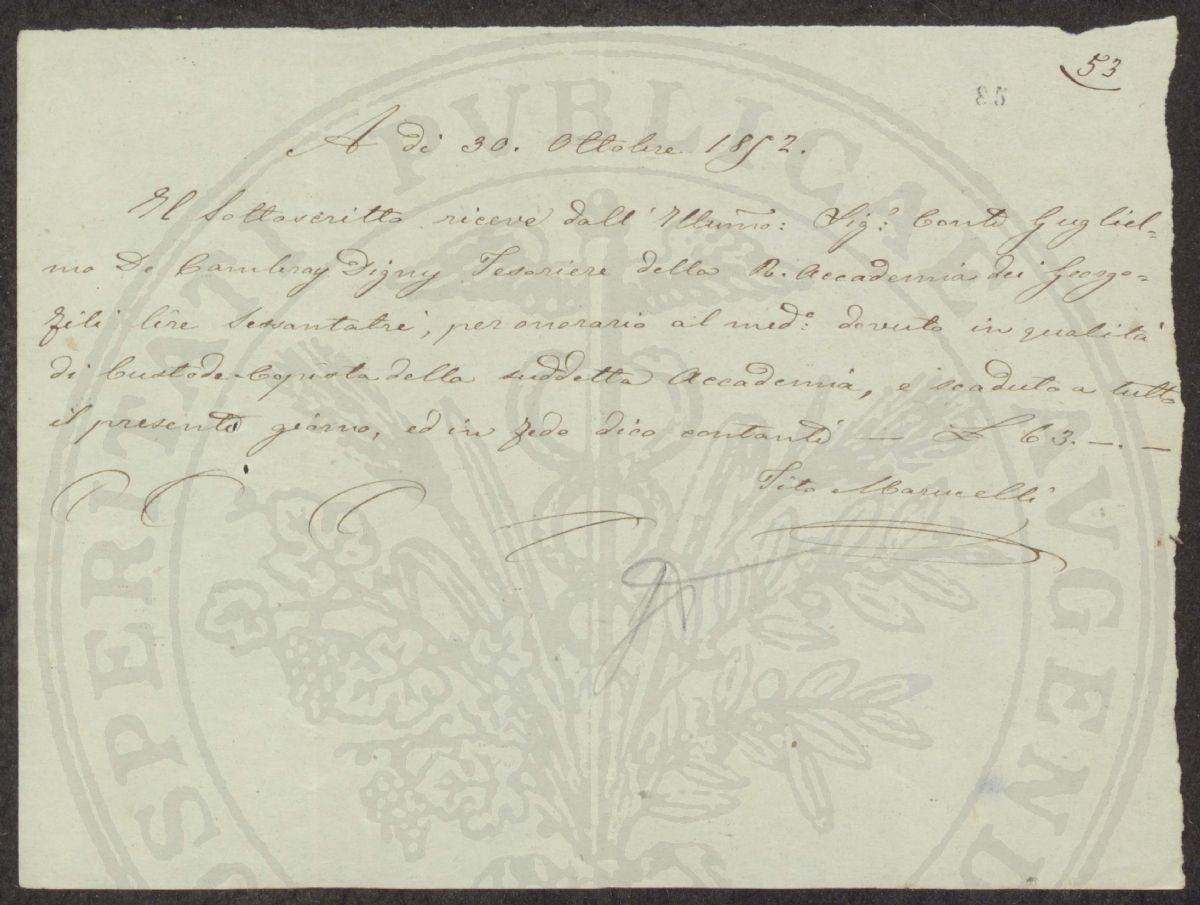 53
53
A di 30. Ottobre 1852.
Il Sottoscritto riceve dall' Illumo: Sig.e Conte Gugliel=
mo De Cambray Digny Tesoriere della R. Accademia dei Georgo=
fili lire Sessantatre, per onorario al medo. dovuto in qualità
di Custode Copista della suddetta Accademia, e scaduto a tutto
il presente giorno, ed in fede dico contanti — £ 63. —. —
Tito Marucelli
PROSPERITATI PVBLICAE AVGENDAE